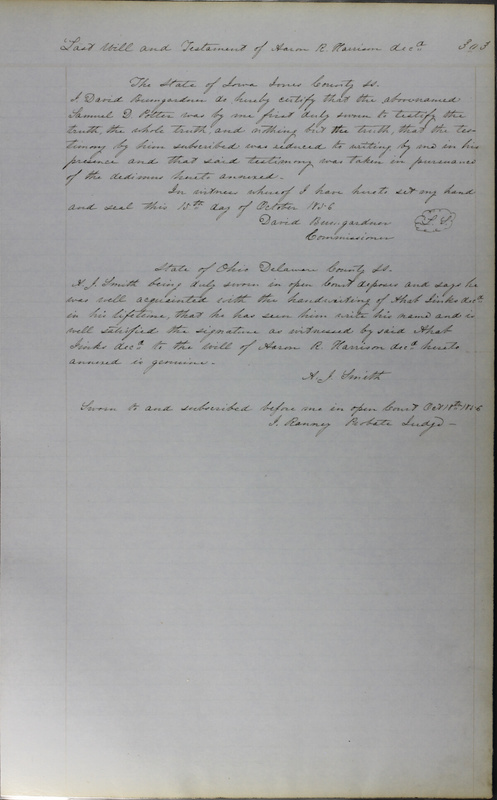 Last Will and Testament of Aaron R. Harrison decd. 393
The State of Iowa Jones County SS.
I David Bumgardner do hereby certify that the abovenamed
Samuel D. Potter was by me first duly sworn to testify the
truth, the whole truth, and nothing but the truth, that the tes-
timony by him subscribed was reduced to writing by me in his
presence and that said testimony was taken in pursuance
of the dedimus hereto annexed.
In witness whereof I have hereto set my hand
and seal this 15th day of October 1856
David Bumgardner L.S.
Commissioner
State of Ohio Delaware County SS.
H. J. Smith being duly sworn in open Court deposes and says he
was well acquainted with the handwriting of Ahab Jinks decd.
in his lifetime, that he has seen him write his name and is
well satisfied the signature as witnessed by said Ahab
Jinks decd. to the will of Aaron R. Harrison decd. hereto
annexed is genuine.
H. J. Smith
Sworn to and subscribed before me in open Court Oct 18th 1856
J. Ranney Probate Judge